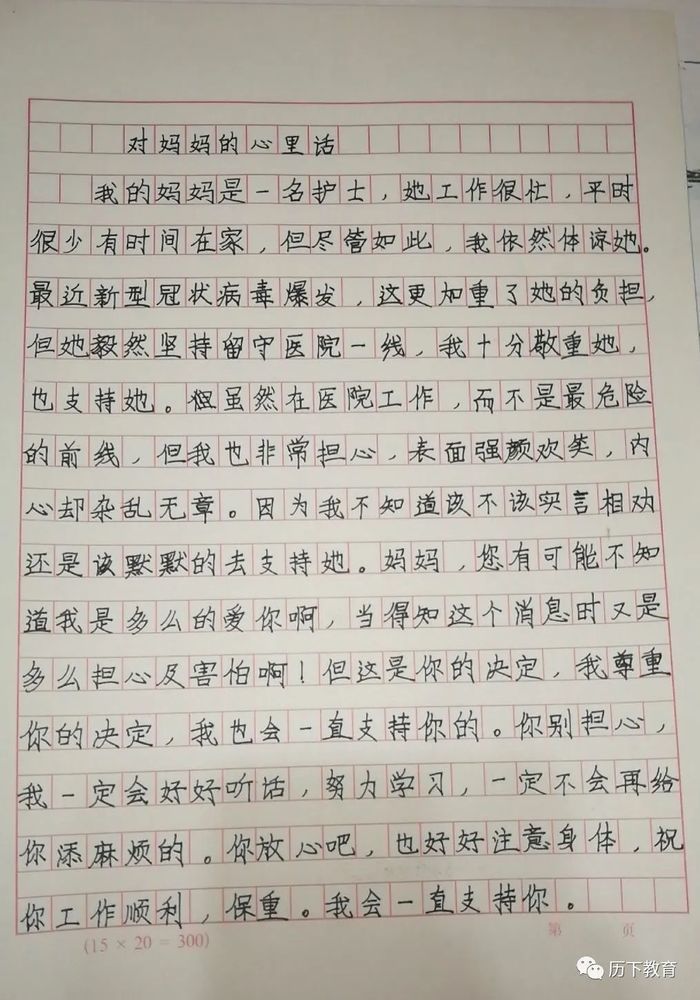 对妈妈的心里话
我的妈妈是一名护士，她工作很忙，平时
很少有时间在家，但尽管如此，我依然体谅她。
最近新型冠状病毒爆发，这更加重了她的负担，
但她毅然坚持留守医院一线，我十分敬重她，
也支持她。虽然在医院工作，而不是最危险
的前线，但我也非常担心，表面强颜欢笑，内
心却杂乱无章。因为我不知道该不该实言相劝
还是该默默的去支持她。妈妈，您有可能不知
道我是多么的爱你啊，当得知这个消息时又是
多么担心及害怕啊！但这是你的决定，我尊重
你的决定，我也会一直支持你的。你别担心，
我一定会好好听话，努力学习，一定不会再给
你添麻烦的。你放心吧，也好好注意身体，祝
你工作顺利，保重。我会一直支持你。
(15 × 20 = 300)
第 页
历下教育